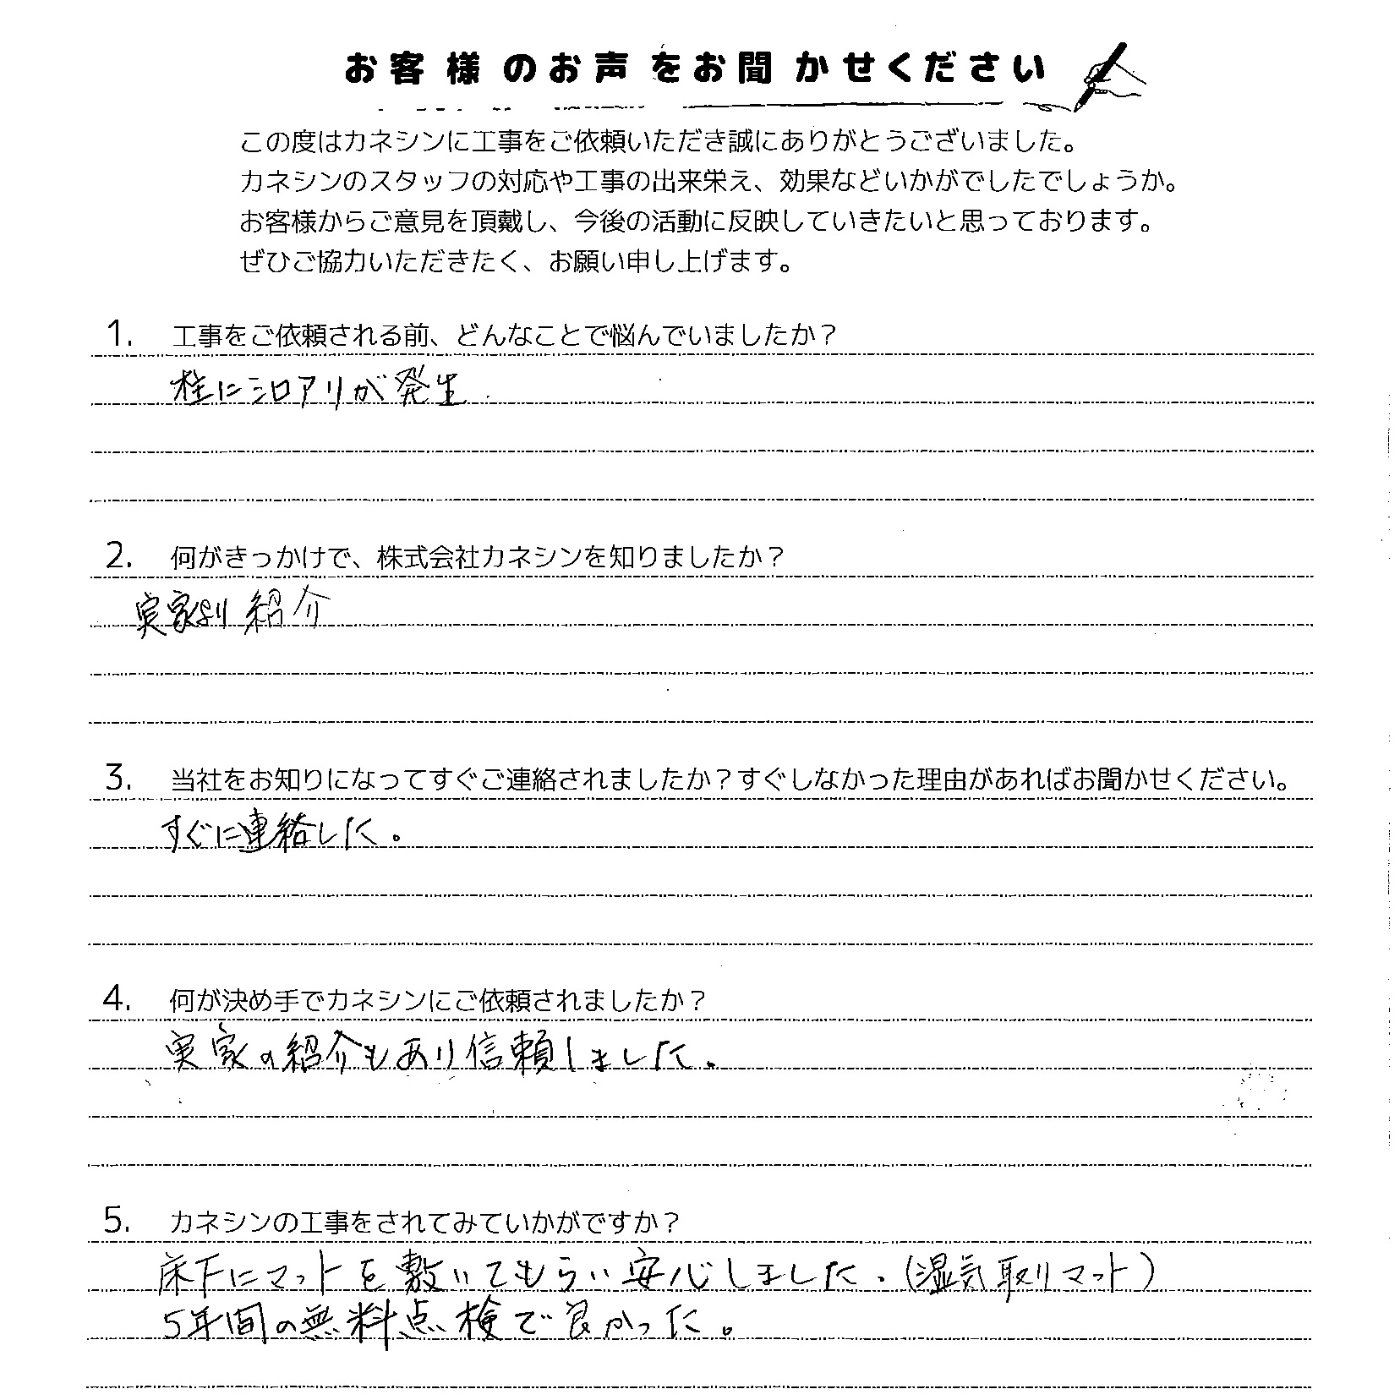 お客様のお声をお聞かせください
この度はカネシンに工事をご依頼いただき誠にありがとうございました。
カネシンのスタッフの対応や工事の出来栄え、効果などいかがでしたでしょうか。
お客様からご意見を頂戴し、今後の活動に反映していきたいと思っております。
ぜひご協力いただきたく、お願い申し上げます。
1. 工事をご依頼される前、どんなことで悩んでいましたか？
柱にシロアリが発生
2. 何がきっかけで、株式会社カネシンを知りましたか？
実家より紹介
3. 当社をお知りになってすぐご連絡されましたか？すぐしなかった理由があればお聞かせください。
すぐに連絡した。
4. 何が決め手でカネシンにご依頼されましたか？
実家の紹介もあり信頼しました。
5. カネシンの工事をされてみていかがですか？
床下にマットを敷いてもらい安心しました。(湿気取りマット)
5年間の無料点検で良かった。